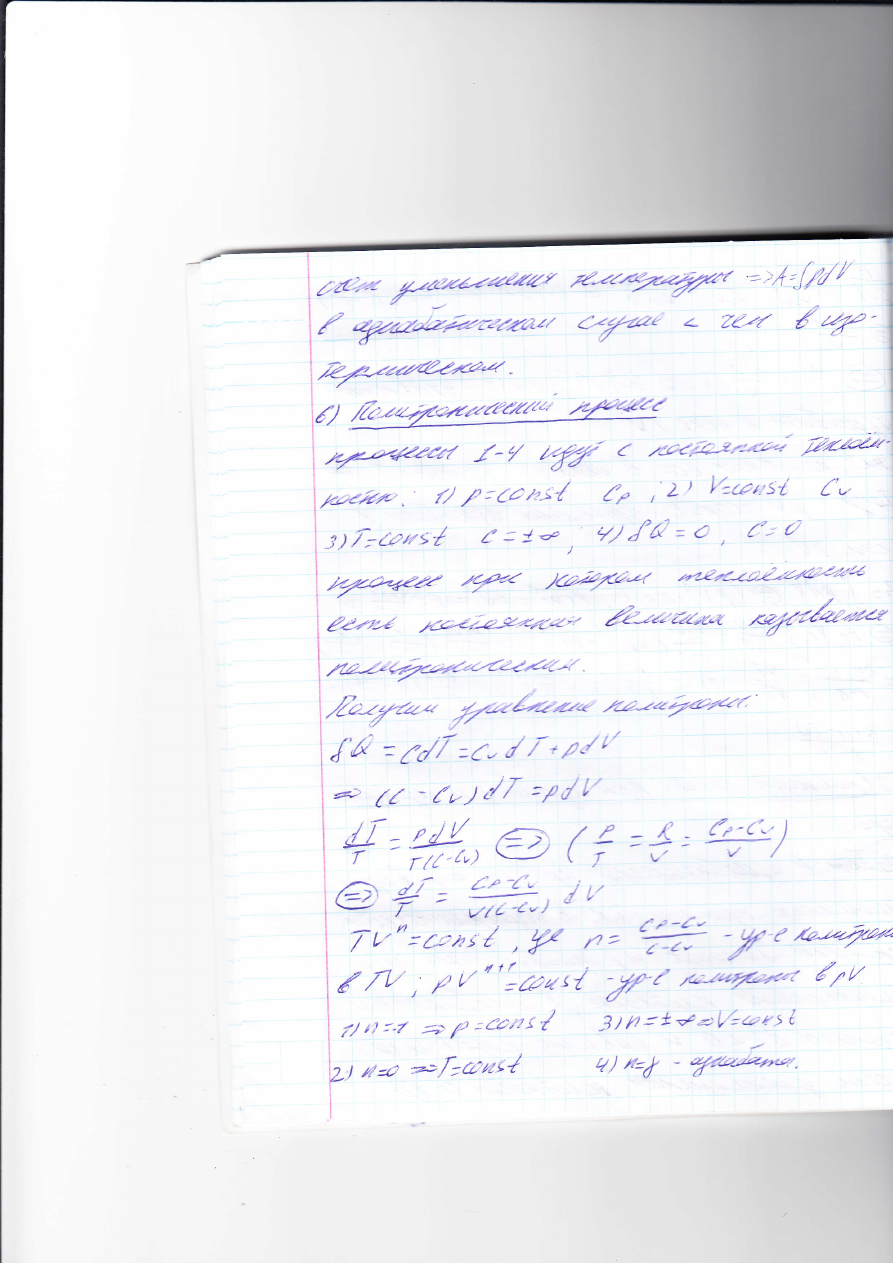 счет уменьшения температуры => A=∫pdV
в адиабатическом случае < чем в изо-
термическом.
6) Политропический процесс
процессы 1-4 идут с постоянной теплоём-
костью: 1) p=const Cp ; 2) V=const Cv
3) T=const C=±∞ ; 4) δQ=0, C=0
процесс при котором теплоёмкость
есть постоянная величина называется
политропическим.
Получим уравнение политропы:
δQ = CdT = CvdT + pdV
=> (C - Cv)dT = pdV
dT/T = pdV/T(C-Cv) => (p/T = R/V = Cp-Cv/V)
=> dT/T = Cp-Cv/V(C-Cv) dV
TVⁿ=const, где n = Cp-Cv/C-Cv - ур-е политропы
в TV ; pVⁿ⁺¹=const - ур-е политропы в pV
1) n=-1 => p=const 3) n=±∞ => V=const
2) n=0 => T=const 4) n=γ - адиабата.